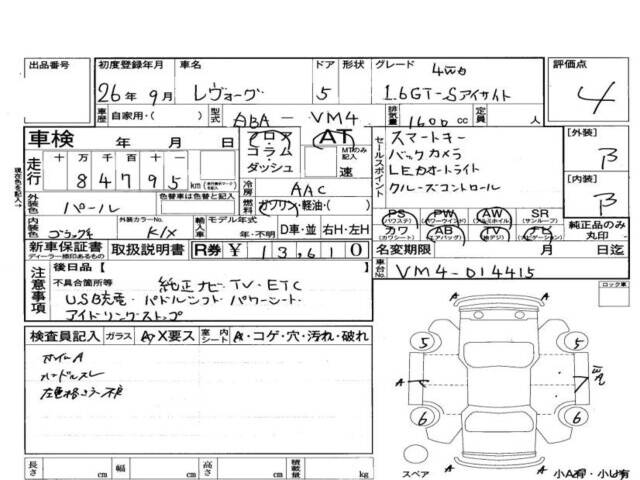 出品番号 初度登録年月 車名 ドア 形状 グレード 評価点
26年 9月 レヴォーグ 5 4WD 1.6GT-Sアイサイト 4
車歴 自家用・( ) 型式 ABA - VM4 排気量 1600cc 定員 人
車検 年 月 日 フロア コラム ダッシュ AT MTのみ記入 速
走行 十 万 千 百 十 一
84795 km
冷房 AAC
燃料 ガソリン・軽油・( )
セールスポイント
スマートキー
バックカメラ
LEDオートライト
クルーズコントロール
[外装] B
[内装] B
現在色を記入→
外装色 パール 色替車は色替と記入
内装色 外装カラーNo. K1X 輸入車 モデル年式 年・不明 D車・並 右H・左H
PS (パワステ) PW (パワーウインド) AW (アルミホイル) SR (サンルーフ)
カワ (カワシート) AB (エアバッグ) TV (地デジ) ナビ (ナビゲーション)
純正品のみ丸印
新車保証書 ディーラー捺印あるもの 取扱説明書 R券 ¥ 13,610 名変期限 月 日迄
注意事項 後日品【 】
不具合箇所等 純正ナビ・TV・ETC
USB充電・パドルシフト・パワーシート・
アイドリングストップ
車台No. VM4-014415
ロック車
検査員記入 ガラス A・X要ス 室内シート A・コゲ・穴・汚れ・破れ
ホイールA
ハンドルスレ
A A
5 5
A
6 6
A
スペア
小A有・小U有
長さ cm 幅 cm 高さ cm 積載量 kg